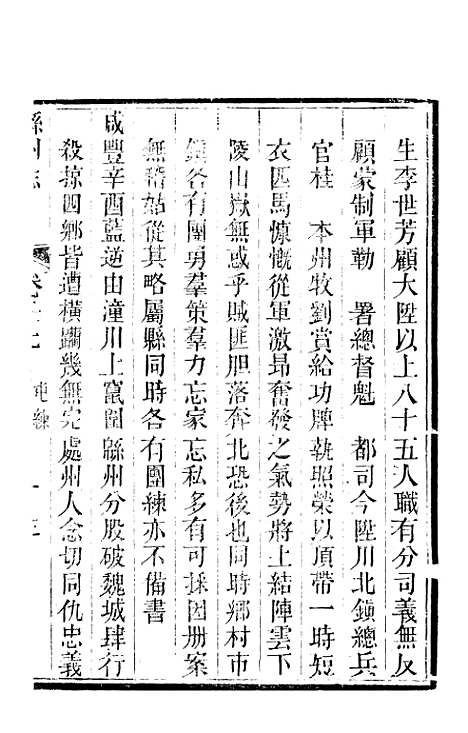 生李世芳顧大陞以上八十五人職有分司義無反
顧蒙制軍勒　署總督魁　都司今陞川北鎮總兵
官桂　本州牧劉賞給功牌執照榮以頂帶一時短
衣匹馬慷慨從軍激昂奮發之氣勢將上結陣雲下
陵山嶽無惑乎賊匪胆落奔北恐後也同時鄉村市
鎮各有團勇羣策羣力忘家忘私多有可採因册案
無稽姑從其略屬縣同時各有團練亦不備書
咸豐辛酉藍逆由潼川上竄圍緜州分股破魏城肆行
殺掠四鄉皆遭橫躪幾無完處州人念切同仇忠義
緜州志